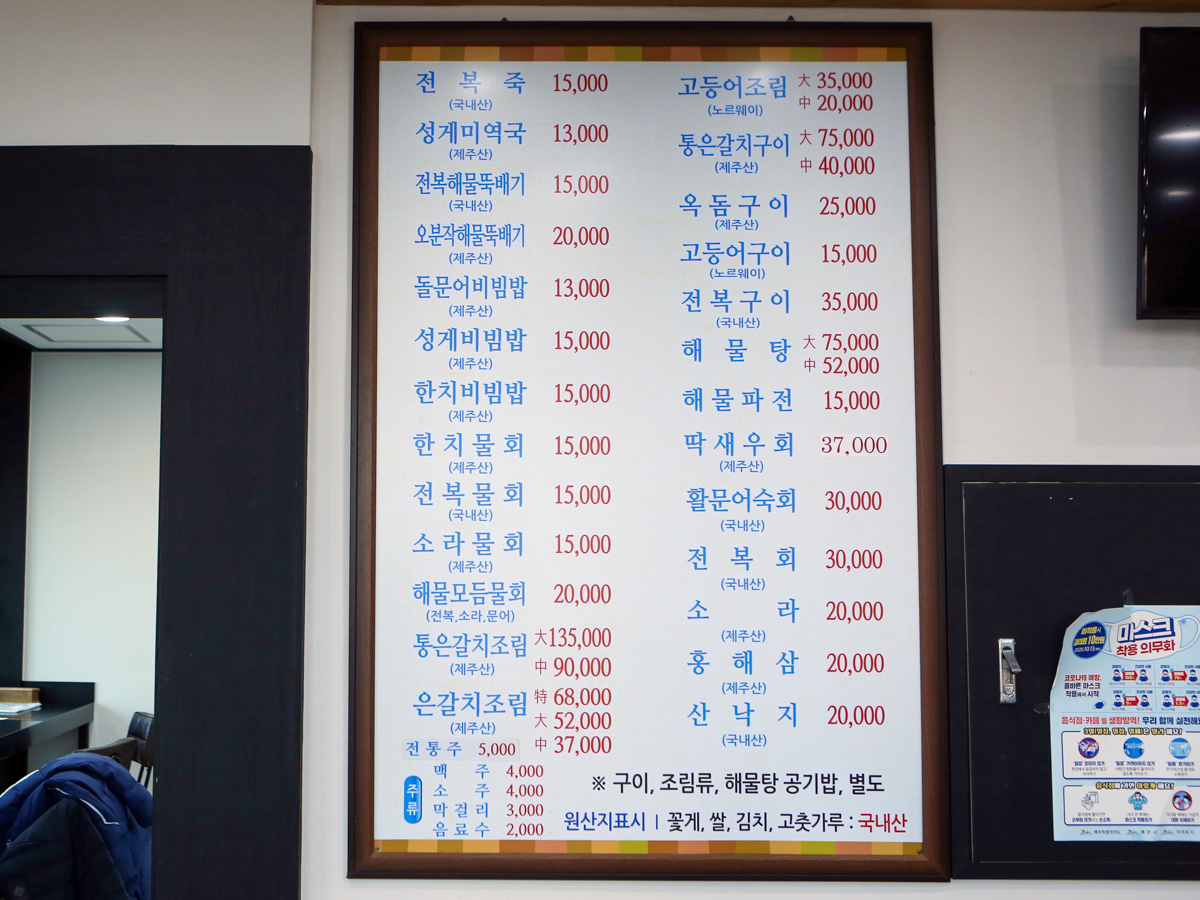 전복죽 15,000
(국내산)
성게미역국 13,000
(제주산)
전복해물뚝배기 15,000
(국내산)
오분작해물뚝배기 20,000
(제주산)
돌문어비빔밥 13,000
(제주산)
성게비빔밥 15,000
(제주산)
한치비빔밥 15,000
(제주산)
한치물회 15,000
(제주산)
전복물회 15,000
(국내산)
소라물회 15,000
(제주산)
해물모듬물회 20,000
(전복,소라,문어)
통은갈치조림 大 135,000
(제주산) 中 90,000
은갈치조림 特 68,000
(제주산) 大 52,000
中 37,000
전통주 5,000
주류
맥주 4,000
소주 4,000
막걸리 3,000
음료수 2,000
고등어조림 大 35,000
(노르웨이) 中 20,000
통은갈치구이 大 75,000
(제주산) 中 40,000
옥돔구이 25,000
(제주산)
고등어구이 15,000
(노르웨이)
전복구이 35,000
(국내산)
해물탕 大 75,000
中 52,000
해물파전 15,000
딱새우회 37,000
(제주산)
활문어숙회 30,000
(국내산)
전복회 30,000
(국내산)
소라 20,000
(제주산)
홍해삼 20,000
(제주산)
산낙지 20,000
(국내산)
※ 구이, 조림류, 해물탕 공기밥, 별도
원산지표시 | 꽃게, 쌀, 김치, 고춧가루 : 국내산
미착용시
과태료 10만원
마스크
착용 의무화
코로나19 예방,
올바른 마스크
착용에서 시작
음식점·카페 등 생활방역! 우리 함께 실천해요